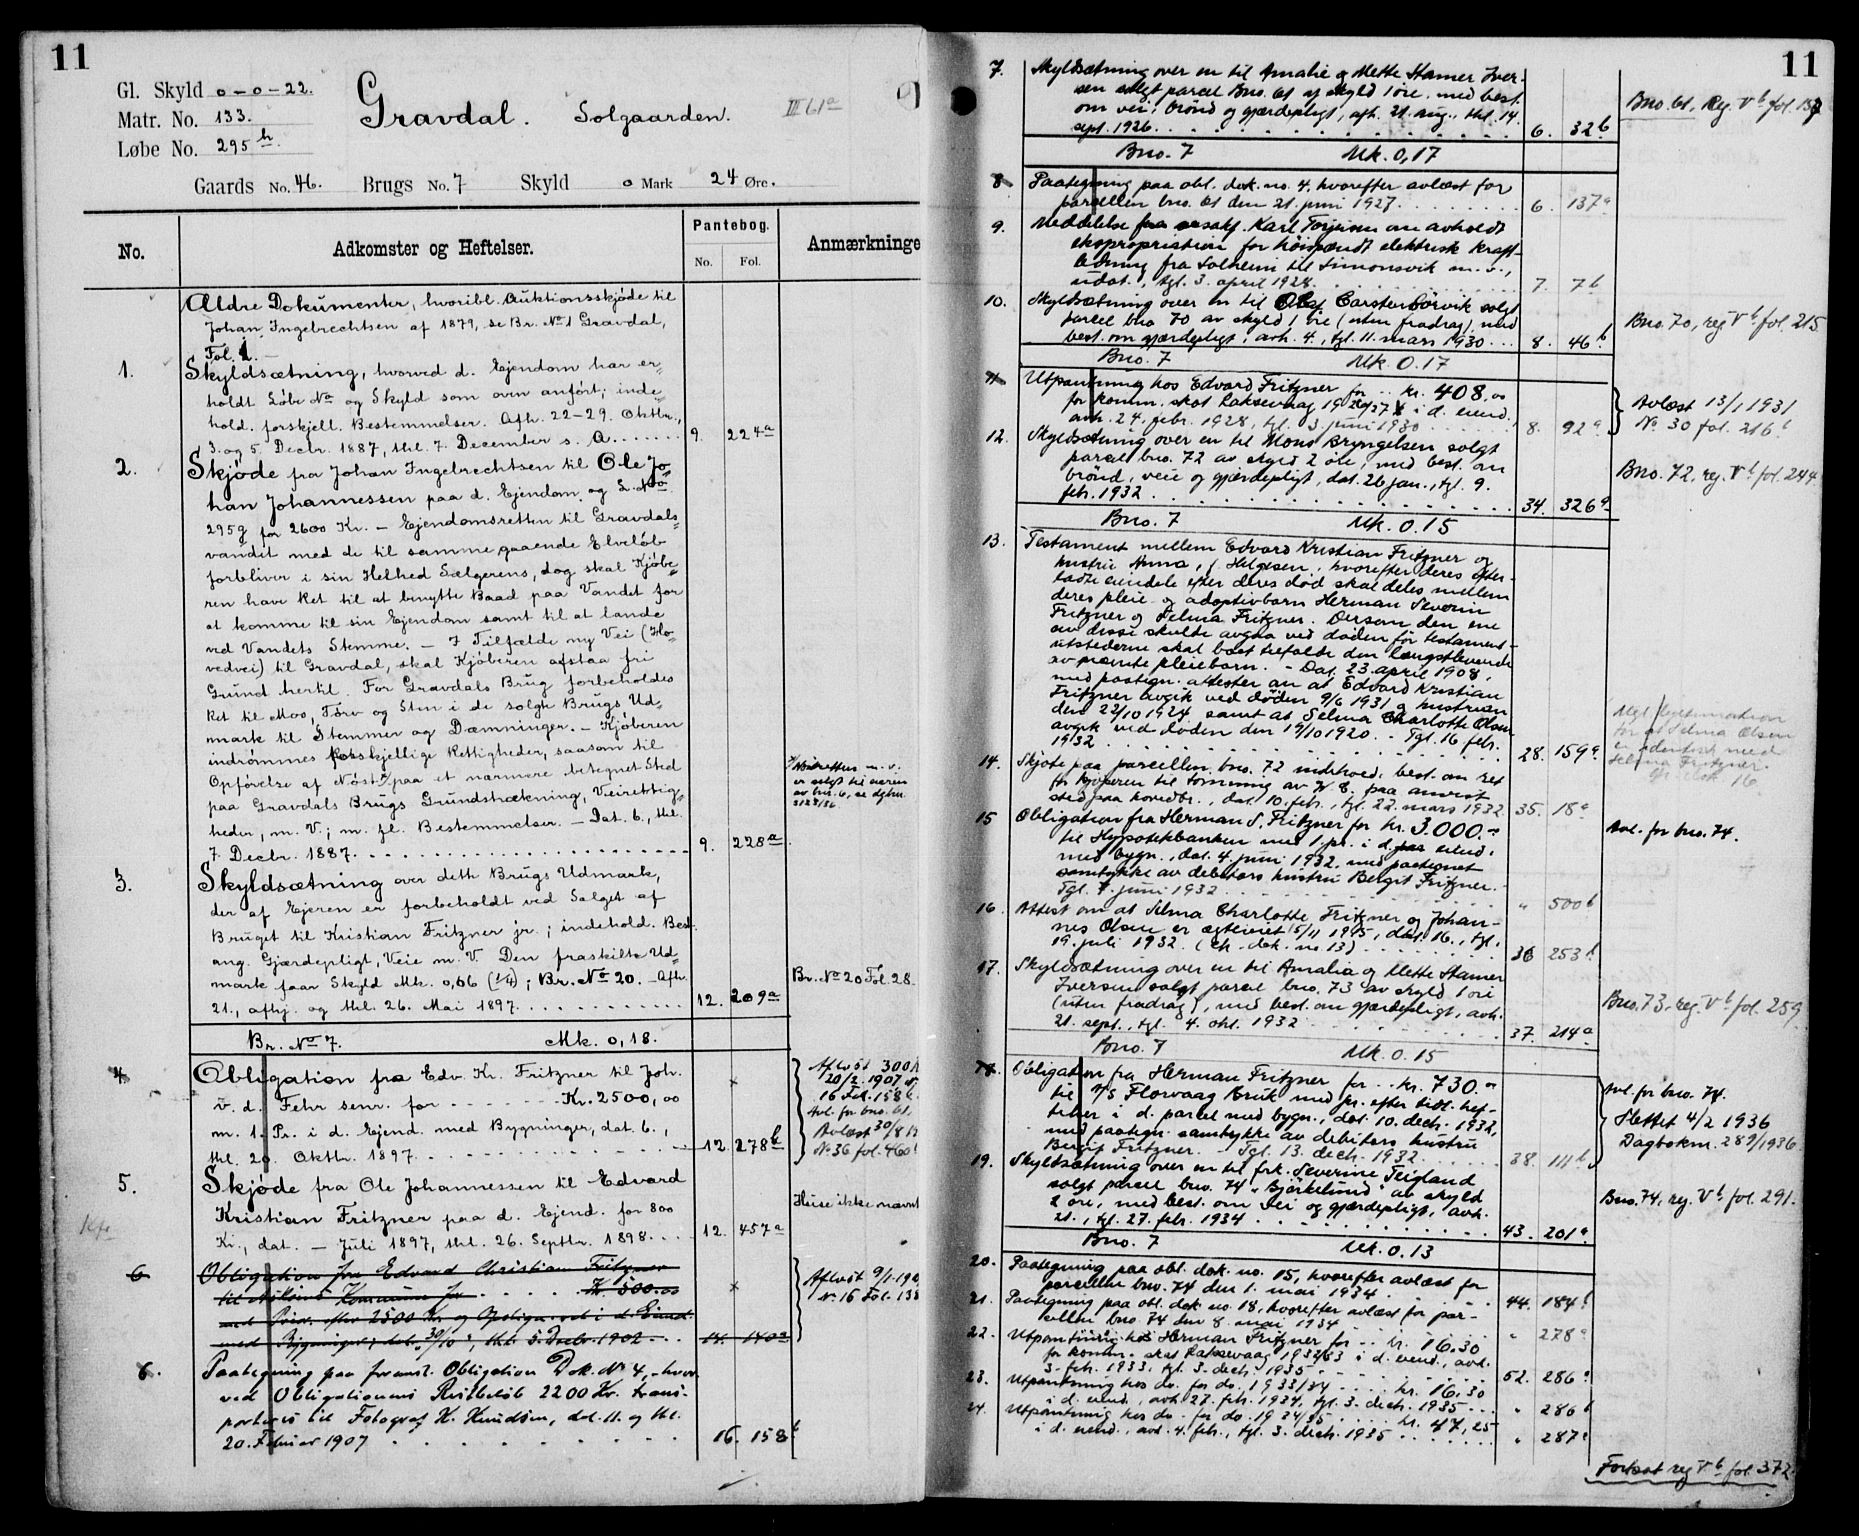 11
Gl. Skyld 0-0-22.
Matr. No. 133.
Løbe No. 295 h
Gravdal. Solgaarden.
III 61a
Gaards No. 46. Brugs No. 7 Skyld 0 Mark 24 Øre.
No. Adkomster og Heftelser. Pantebog. No. Fol. Anmærkninge
Ældre Dokumenter, hvoribl. Auktionsskjøde til
Johan Ingebrechtsen af 1879, se Br. No 1 Gravdal,
Fol. 1. —
1. Skyldsætning, hvorved d. Ejendom har er-
holdt Løbe No og Skyld som oven anført; inde-
hold. forskjell. Bestemmelser. Afh. 22-29. Oktbr.,
3. og 5. Decbr. 1887, thl. 7. December s. A. 9. 224a
2. Skjøde fra Johan Ingebrechtsen til Ole Jo-
han Johannessen paa d. Ejendom og L. No
295g for 2600 Kr. — Ejendomsretten til Gravdals-
vandet med de til samme gaaende Elveløb
forbliver i sin Helhed Sælgerens, dog skal Kjøbe-
ren have Ret til at benytte Baad paa Vandet for
at komme til sin Ejendom samt til at lande
ved Vandets Stemme. — I Tilfælde ny Vei (Ho-
vedvei) til Gravdal, skal Kjøberen afstaa fri
Grund hertil. For Gravdals Brug forbeholdes
Ret til Mos, Torv og Sten i de solgte Brugs Ud-
mark til Stemmer og Dæmninger. — Kjøberen
indrømmes forskjellige Rettigheder, saasom til
Opførelse af Nøst paa et nærmere betegnet Sted
paa Gravdals Brugs Grundstrækning, Veirettig-
heder, m. V.; m. fl. Bestemmelser. — Dat. 6., thl.
7. Decbr. 1887. 9. 228a
m. v.
er solgt til eieren
av bnr. 6, se dgbnr.
3128/36
3. Skyldsætning over dette Brugs Udmark,
der af Ejeren er forbeholdt ved Salget af
Bruget til Kristian Fritzner jr.; indehold. Best.
ang. Gjærdepligt, Veie m. V. Den fraskilte Ud-
mark faar Skyld Mk. 0,06 (1/4); Br. No 20. — Afh.
21., afhj. og thl. 26. Mai 1897. 12. 209a
Br. No 20 Fol. 28.
Br. No 7. Mk. 0,18.
4. Obligation fra Edv. Kr. Fritzner til Joh.
v. d. Fehr senr. for Kr. 2500,00
m. 1. Pr. i d. Ejend. med Bygninger, dat. 6.,
thl. 20. Oktbr. 1897. 12. 278b
Afløst 300 K
20/2 1907
16 Fol. 158 b.
Avl. for bno. 61,
Avløst 30/8
No 36 fol. 460
5. Skjøde fra Ole Johannessen til Edvard
Kristian Fritzner paa d. Ejend. for 800
Kr., dat. — Juli 1897, thl. 26. Septbr. 1898. 12. 457a
Huse ikke nævnt
6 Obligation fra Edvard Christian Fritzner
til Askøens Kommune for Kr 500.00
med Prior. efter 2500 Kr. og Opsiger ret i d. Eiend.
med Bygninger; dat. 30/10, thl. 5. Decbr. 1902 14. 140a
Afløst 9/1-190
No 16 Fol. 138
6. Paategning paa foranst. Obligation Dok. No 4, hvor-
ved Obligationens Restbeløb 2200 Kr. trans-
porteres til Fotograf K. Knudsen, dat. 11. og thl.
20. Februar 1907 16. 158b
11
7. Skyldsætning over en til Amalie og Mette Stamer Iver-
sen solgt parcel Bno. 61 af skyld 1 øre. med best.
om vei, brønd og gjærdepligt, afh. 21. aug., thl. 14.
sept. 1926. 6. 32b
Bno. 61, Reg. V b fol. 137
Bno. 7 Mk. 0,17
8 Paategning paa obl. dok. no. 4. hvorefter avløst for
parcellen bno. 61 den 21. juni 1927. 6. 137a
9. Meddelelse fra overrsakf. Karl Torjusen om avholdt
ekspropriation for høispændt elektrisk kraft-
ledning fra Solheim til Simonsvik m. v.,
udat., tgl. 3. april 1928. 7. 7b
10. Skyldsætning over en til Olaf Carsten Børvik solgt
parcel bno. 70 av skyld 1 øre (uten fradrag), med
best. om gjærdepligt, avh. 4., tgl. 11. mars 1930. 8. 46b
Bno. 70, reg V b fol. 215
Bno. 7 Mk. 0.17
11 Utpantning hos Edvard Fritzner for kr. 408,00
for komm. skat Laksevaag 1926/27 i d. eiend.
avh. 24. febr. 1928, tgl. 3. juni 1930 8. 92a
Avløst 13/1 1931
No 30 fol. 216b
12. Skyldsætning over en til Mons Bryngelsen solgt
parcel bno. 72 av skyld 2 øre, med best. om
brønd, veie og gjærdepligt, dat. 26 jan., tgl. 9.
febr. 1932 34. 326a
Bno. 72, reg. V b fol. 244
Bno. 7 Mk. 0.15
13. Testament mellem Edvard Kristian Fritzner og
hustru Anna, f. Helgesen, hvorefter deres efter-
ladte eiendele efter deres død skal deles mellem
deres pleie- og adoptivbarn Herman Severin
Fritzner og Selma Fritzner. Dersom den ene
av disse skulde avgaa ved døden før testament-
utstederne skal boet tilfalde den længstlevende
av nævnte pleiebarn. - Dat. 23. april 1908,
med paategn. attester om at Edvard Kristian
Fritzner avgik ved døden 9/6 1931 og hustruen
den 22/10 1924 samt at Selma Charlotte Olsen
avgik ved døden den 19/10 1920. - Tgl. 16 febr.
1932 28. 159a
Mgl. legitimation
for at Selma Olsen
er identisk med
Selma Fritzner.
dok. 16
14. Skjøte paa parcellen bno. 72 indehold. best. om ret
for kjøperen til tomning av W. C. paa anvist
sted paa hovedbr., dat. 10. febr., tgl. 22. mars 1932 35. 18a
15 Obligation fra Herman S. Fritzner for kr. 3.000.-
til Hypotekbanken med 1. pr. i d. eiend.
med bygn., dat. 4. juni 1932. med paategnet
samtykke av debitors hustru Bergit Fritzner.
Tgl. 7. juni 1932 " 500b
Avl. for bno. 74.
16. Attest om at Selma Charlotte Fritzner og Johan-
nes Olsen er ægteviet 5/11 1915, dat. 16., tgl.
19. juli 1932. (cfr. dok. no. 13) 36 253b
17. Skyldsætning over en til Amalia og Mette Stamer
Iversen solgt parcel bno. 73 av skyld 1 øre
(uten fradrag), med best. om gjærdepligt, avh.
21. sept., tgl. 4. okt. 1932 37. 214a
Bno. 73, reg. V b fol. 259
Bno. 7 Mk. 0.15
18. Obligation fra Herman Fritzner for kr. 730.00
til A/S Florvaag Bruk med pr. efter tidl. hef-
telser i d. parcel med bygn., dat. 10. decbr. 1932,
med paategn. samtykke av debitors hustru
Bergit Fritzner. - Tgl. 13. decbr. 1932. 38. 111b
Avl. for bno. 74.
Slettet 4/2 1936
Dagboknr. 289/1936
19. Skyldsætning over en til frk. Severine Teigland
solgt parcel bno. 74 "Bjørkelund" av skyld
2 øre, med best. om vei og gjærdepligt, avh.
21., tgl. 27. febr. 1934 43. 201a
Bno. 74, reg. V b fol. 291.
Bno. 7 Mk. 0.13
20. Paategning paa obl. dok. no. 15, hvorefter avløst for
parcellen bno. 74 den 1. mai 1934 44. 184b
21. Paategning paa obl. dok no. 18, hvorefter avløst for par-
cellen bno. 74 den 8. mai 1934 " 278a
22. Utpantning hos Herman Fritzner for kr. 16.30
for komm. skat Laksevaag 1932/33 i d. eiend., avh.
3. febr. 1933, tgl. 3. decbr. 1935 52. 286a
23. Utpantning hos do. for do. 1933/34 kr. 16,30
i d. eiend., avh. 23. febr. 1934, tgl. 3. decbr. 1935 " 286b
24. Utpantning hos do. for do. 1934/35 kr. 47,25
i d. eiend., avh. 4. febr., tgl. 3. decbr. 1935 " 287a
Fortsat reg V b fol. 372.